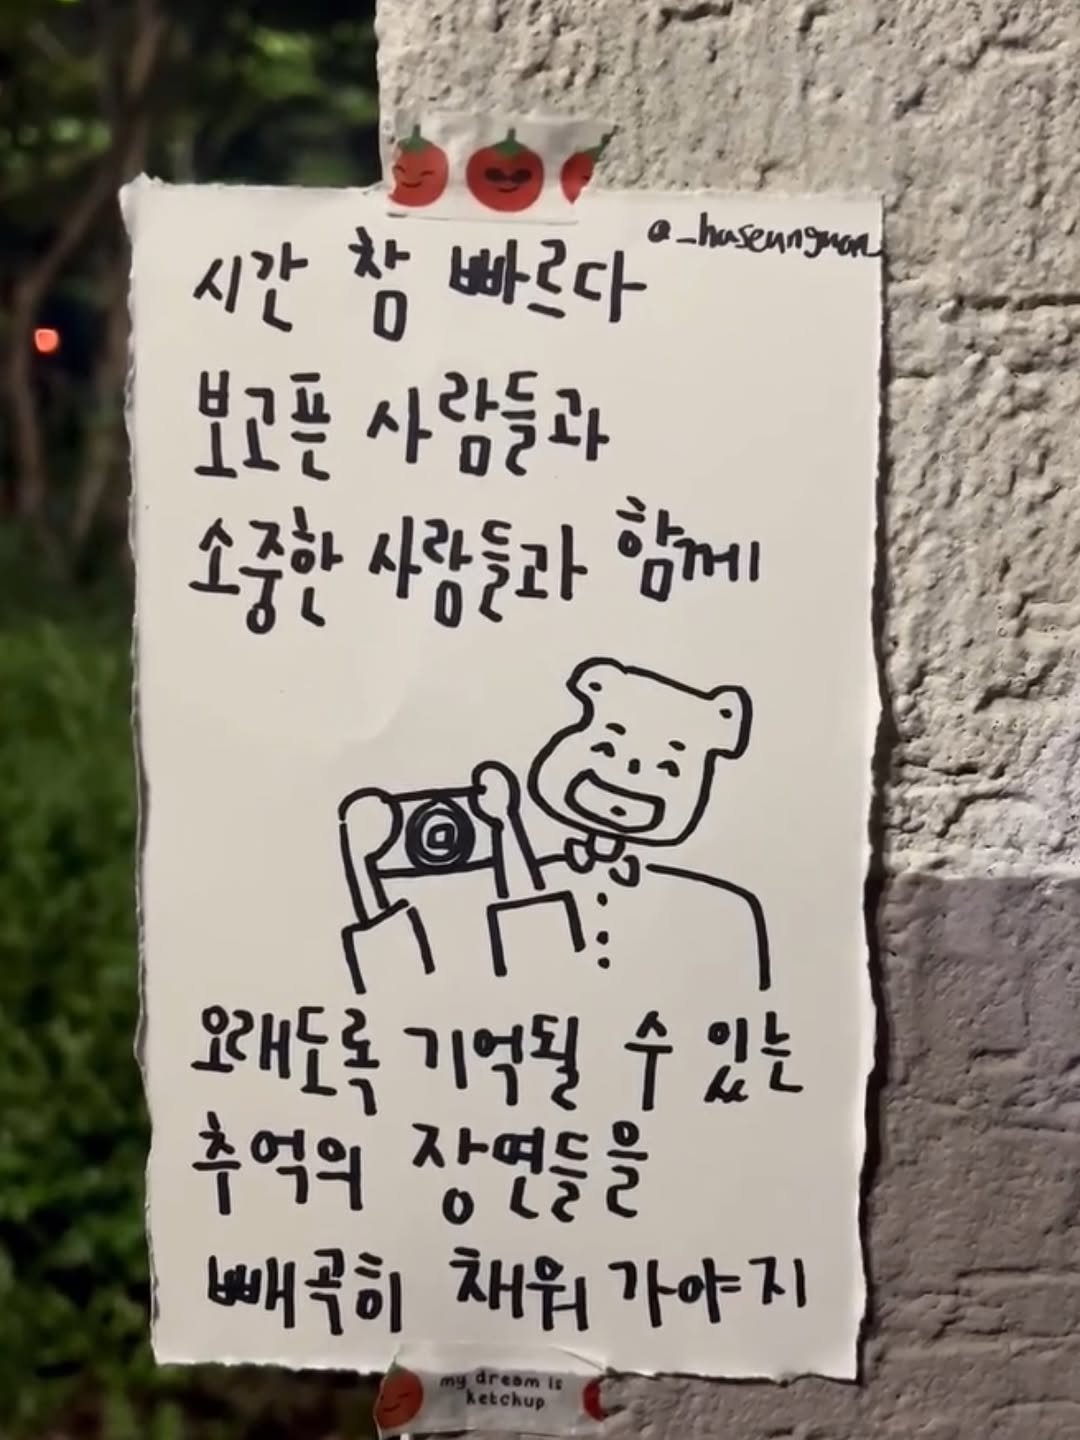 @_haseungwan
시간 참 빠르다
보고픈 사람들과
소중한 사람들과 함께
오래도록 기억될 수 있는
추억의 장면들을
빼곡히 채워 가야지
my dream is
ketchup